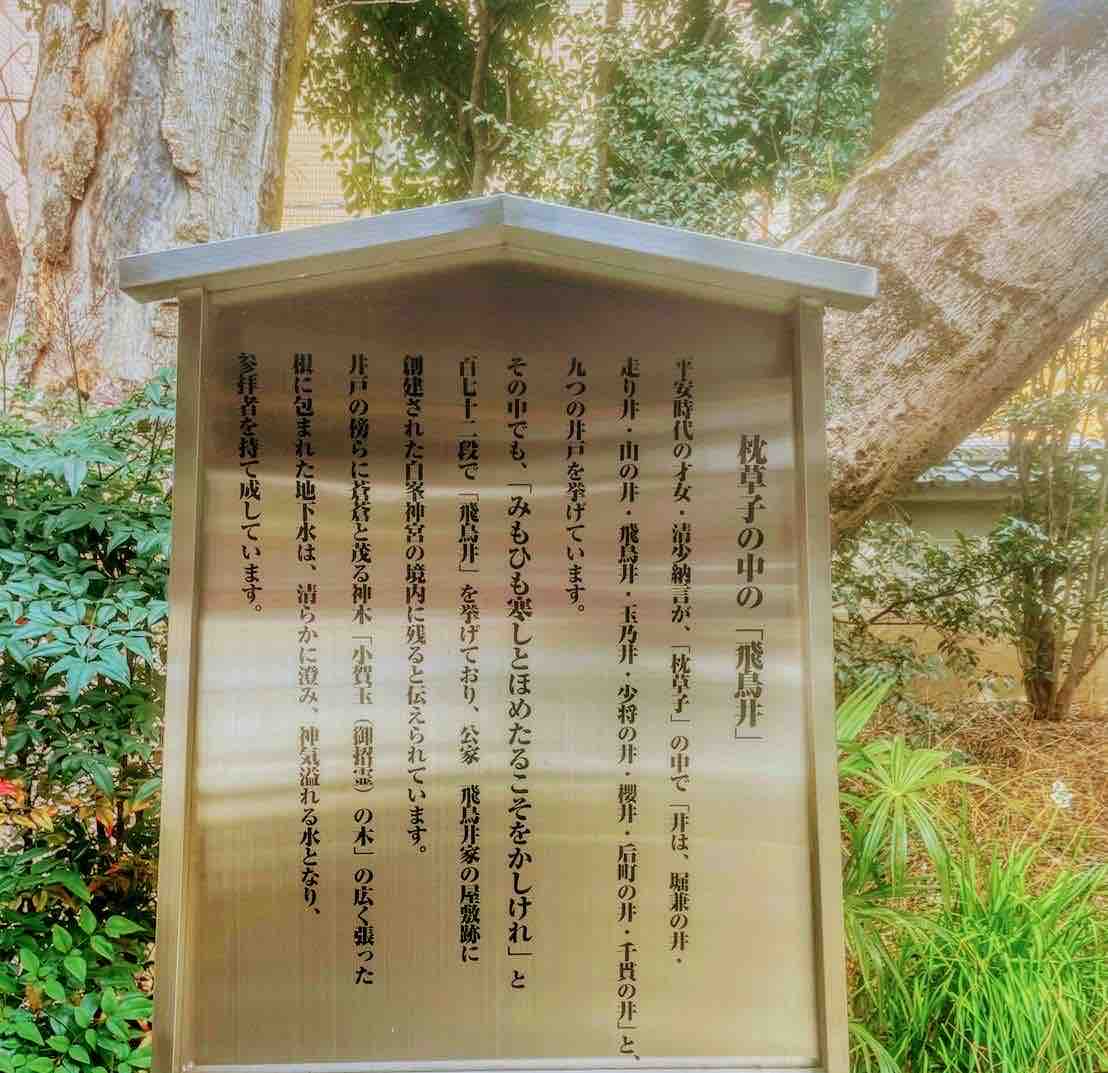 枕草子の中の「飛鳥井」
平安時代の才女・清少納言が、「枕草子」の中で「井は、堀兼の井・
走り井・山の井・飛鳥井・玉乃井・少将の井・櫻井・后町の井・千貫の井」と、
九つの井戸を挙げています。
その中でも、「みもひも寒しとほめたるこそをかしけれ」と
百七十二段で「飛鳥井」を挙げており、公家　飛鳥井家の屋敷跡に
創建された白峯神宮の境内に残ると伝えられています。
井戸の傍らに蒼蒼と茂る神木「小賀玉（御招霊）の木」の広く張った
根に包まれた地下水は、清らかに澄み、神気溢れる水となり、
参拝者を持て成しています。